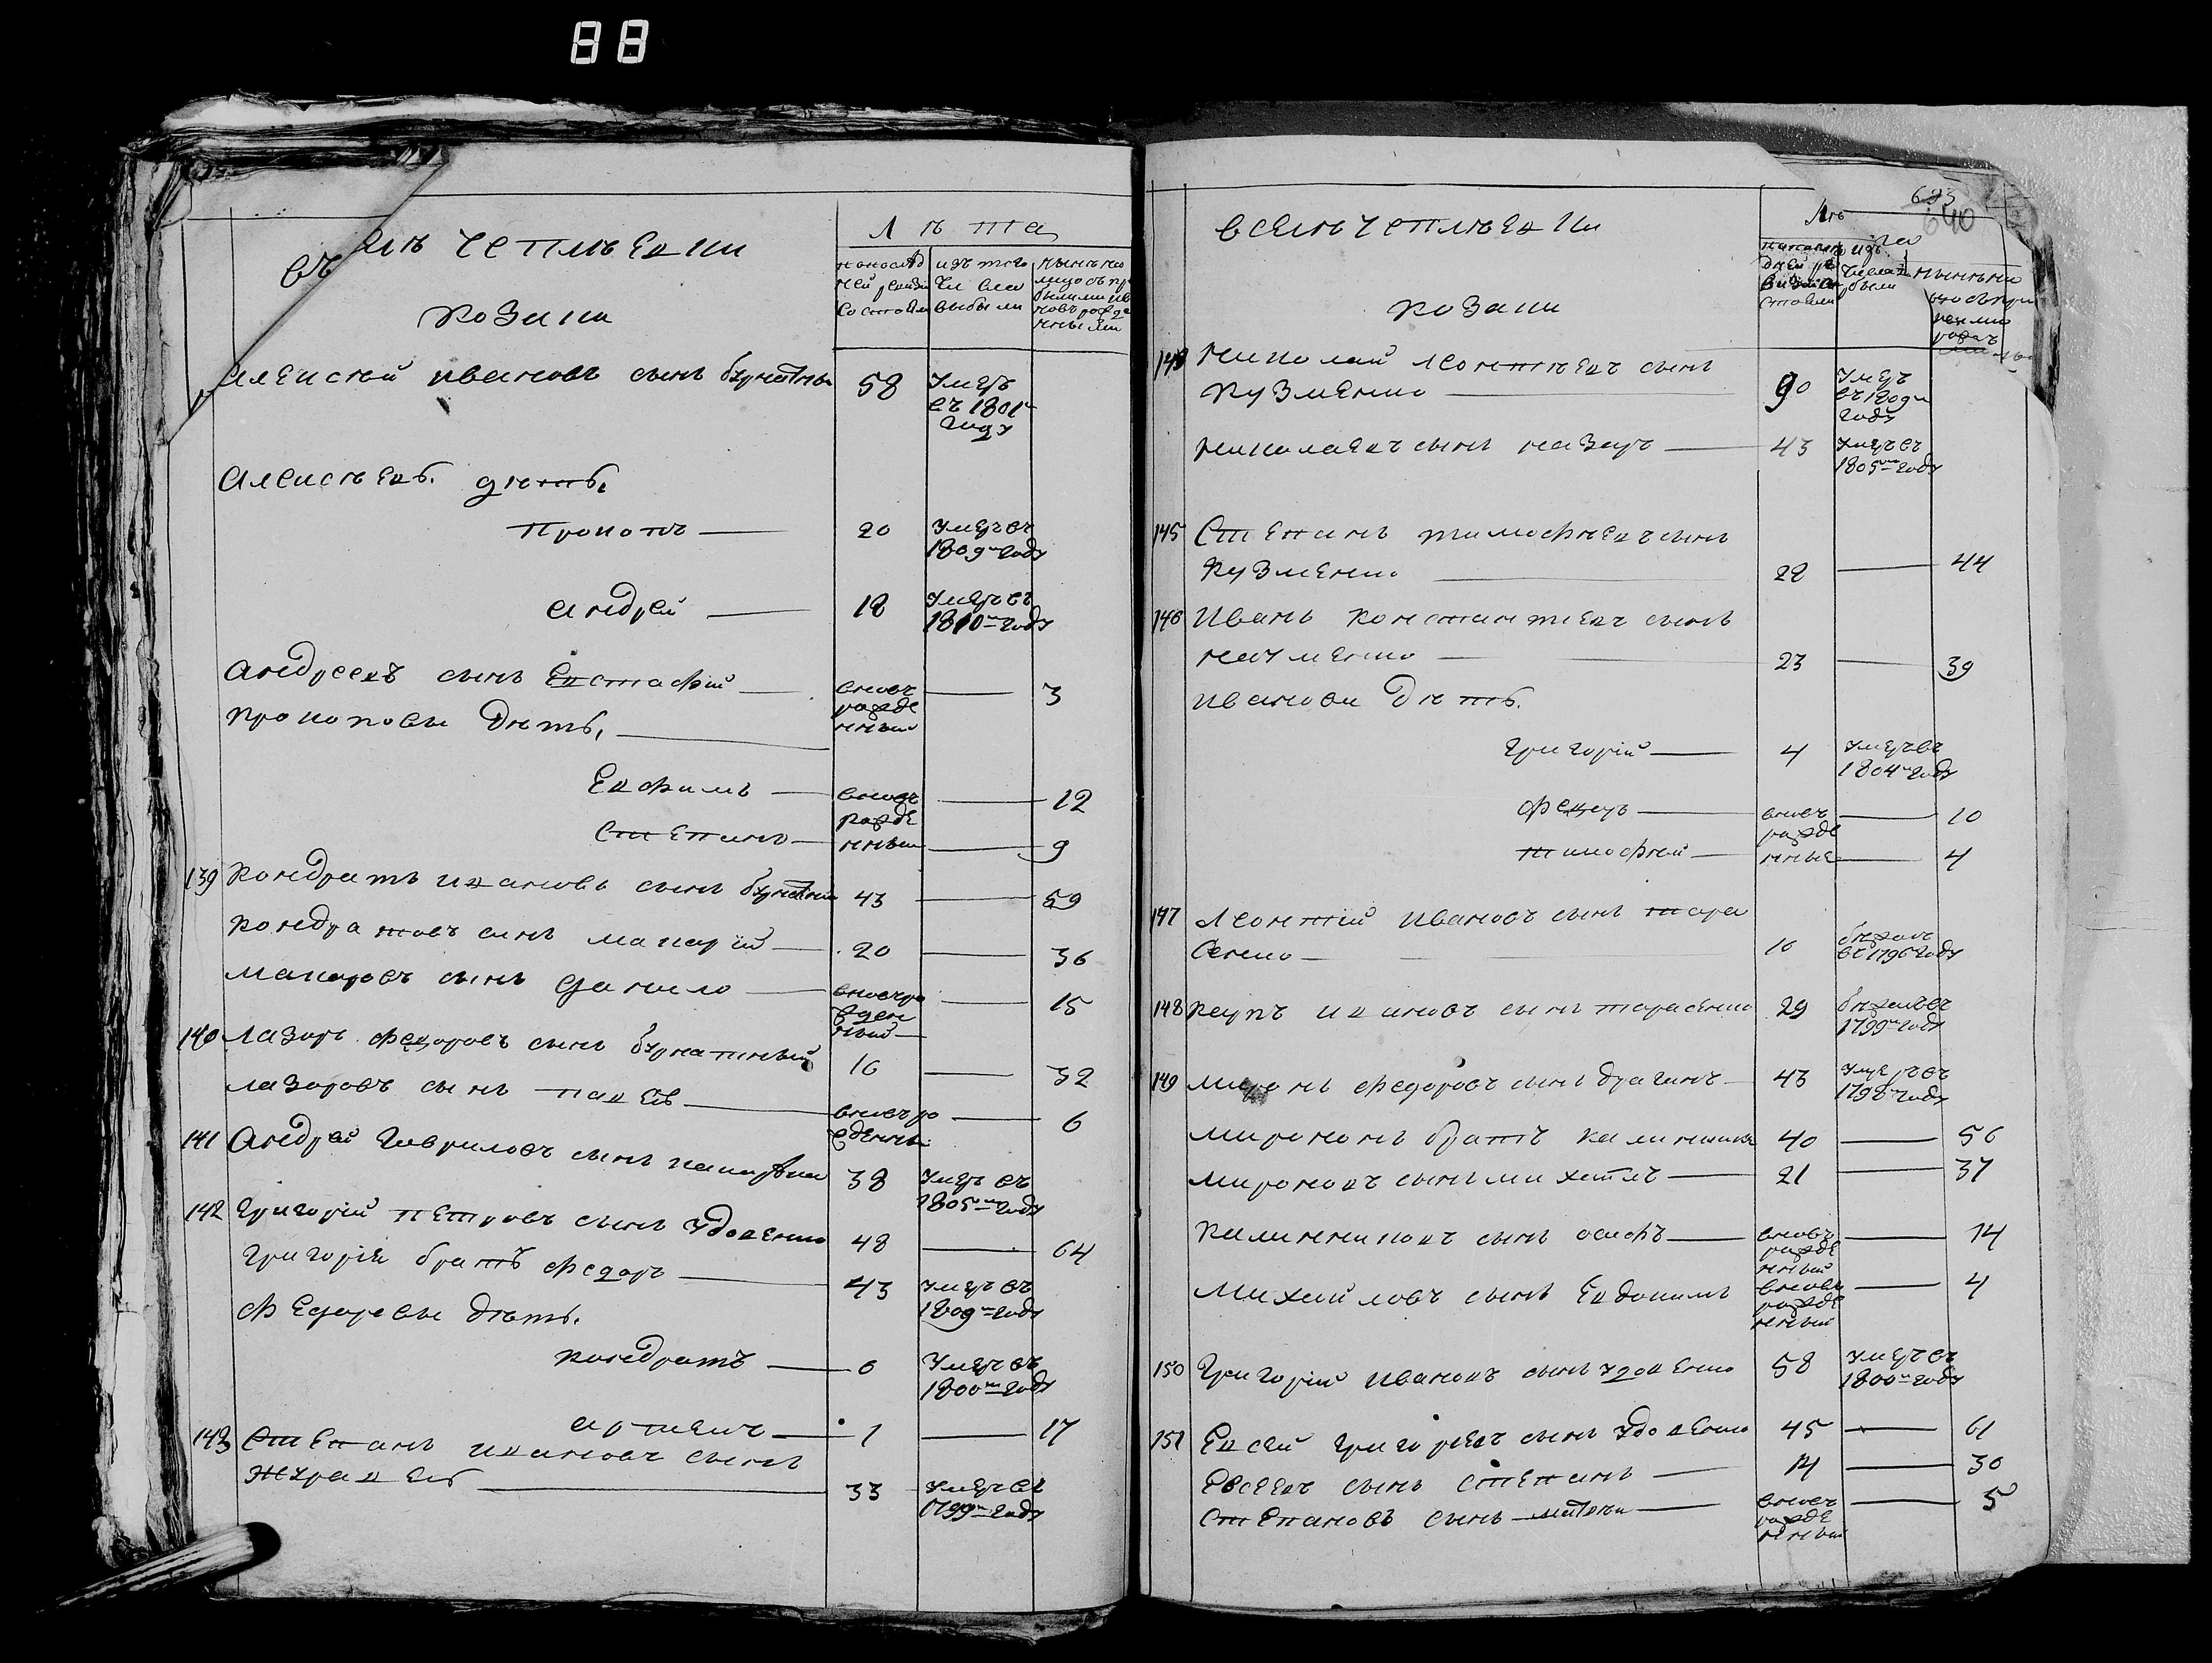 88
въ
лѣ Чепилѣевки
Козаки
Лѣта
на послѣд
ней ревизи
состояли
изъ того
числа
выбыли
нынѣ на
лицо съ пр
Алексей Ивановъ сынъ
58
Умеръ
въ 1801м
году
Алексѣевы дѣти,
Прокопъ
20
Умеръ въ
1809м году
Андрей
18
Умеръ въ
1810м году
Андреевъ сынъ Евстафій
вновь
рожде
нный
3
Прокоповы дѣти,
Евфимъ
вновь
рожде
12
Степанъ
нные
9
139 Кондратъ Ивановъ сынъ
43
59
Кондратовъ синъ Макарій
20
36
Макаровъ сынъ Данило
вновь ро
жден
ный
15
140 Лазорь Федоровъ сынъ
16
32
Лазоровъ сынъ
вновь ро
жденны
6
141 Андрей Гавриловъ сынъ
38
Умеръ въ
1805м году
142 Григорій Петровъ сынъ Удовенко
48
64
Григорія братъ Федоръ
43
Умеръ въ
1809м году
Федоровы дѣти.
Кондратъ
6
Умеръ въ
1800м году
Артемъ
1
17
143 Степанъ Ивановъ сынъ
Журавель
33
Умеръ въ
1799м году
640
Лѣ
та
в селѣ Чепилѣевки
Козаки
Николай Леонтѣевъ сынъ
Кузменко
90
Умеръ
въ 1809м
году
Николаевъ сынъ Назаръ
43
Умеръ въ
1805м году
145 Степанъ Тимофѣевъ сынъ
Кузменко
28
44
146 Иванъ Константиевъ сынъ
Науменко
23
39
Иванови дѣти.
Григорій
4
Умеръ въ
1804м году
Федоръ
вновь
рожде
10
Тимофей
нные
4
147 Леонтій Ивановъ сынъ Тара
сенко
16
бѣжалъ
въ 1796 году
148 Карпъ Ивановъ сынъ Тарасенко
29
бѣжалъ въ
1799м году
149 Миронъ Федоровъ сынъ Драганъ
43
Умеръ въ
1798м году
Мирононъ братъ
40
56
Мироновъ сынъ Михаилъ
21
37
Калинниковъ сынъ Осифъ
вновь
рожде
нный
14
Михайловъ сынъ Евдокимъ
вновь
рожде
нный
4
150 Григорій Ивановъ сынъ Удовенко
58
Умеръ въ
1800м году
151 Евсей Григориевъ сынъ Удовенко
45
61
Евсеевъ сынъ Степанъ
14
30
Степановъ сынъ
вновь
рожде
нный
5